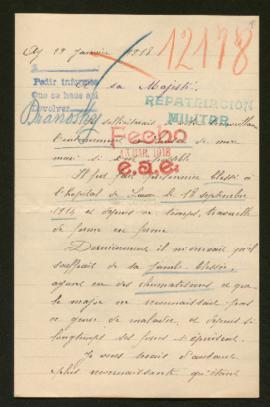 Ay 19 Janvier 1918
12178
Pedir informes
Que se haus aqui
Devolver
Branosky
A sa Majesté
REPATRIACION
MILITAR
Fecho
MAR. 1918
e.a.e.
mari si
Il fut fait prisonnier blessé à
l'hopital de Laon le 18 septembre
1914 et depuis ce temps, travaille
de ferme en ferme
Dernièrement il m'écrivait qu'il
souffrait de sa jambe blessée
ayant eu des rhumatismes et que
le major ne reconnaissait pas
ce genre de maladie, et depuis si
longtemps ses forces s'épuisent
Je vous serais d'autant
plus reconnaissante qu'étant